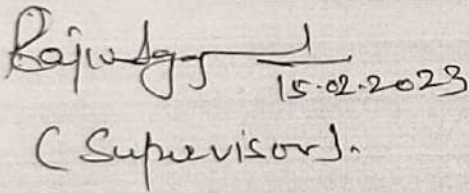 15.02.2023
(Supervisor).